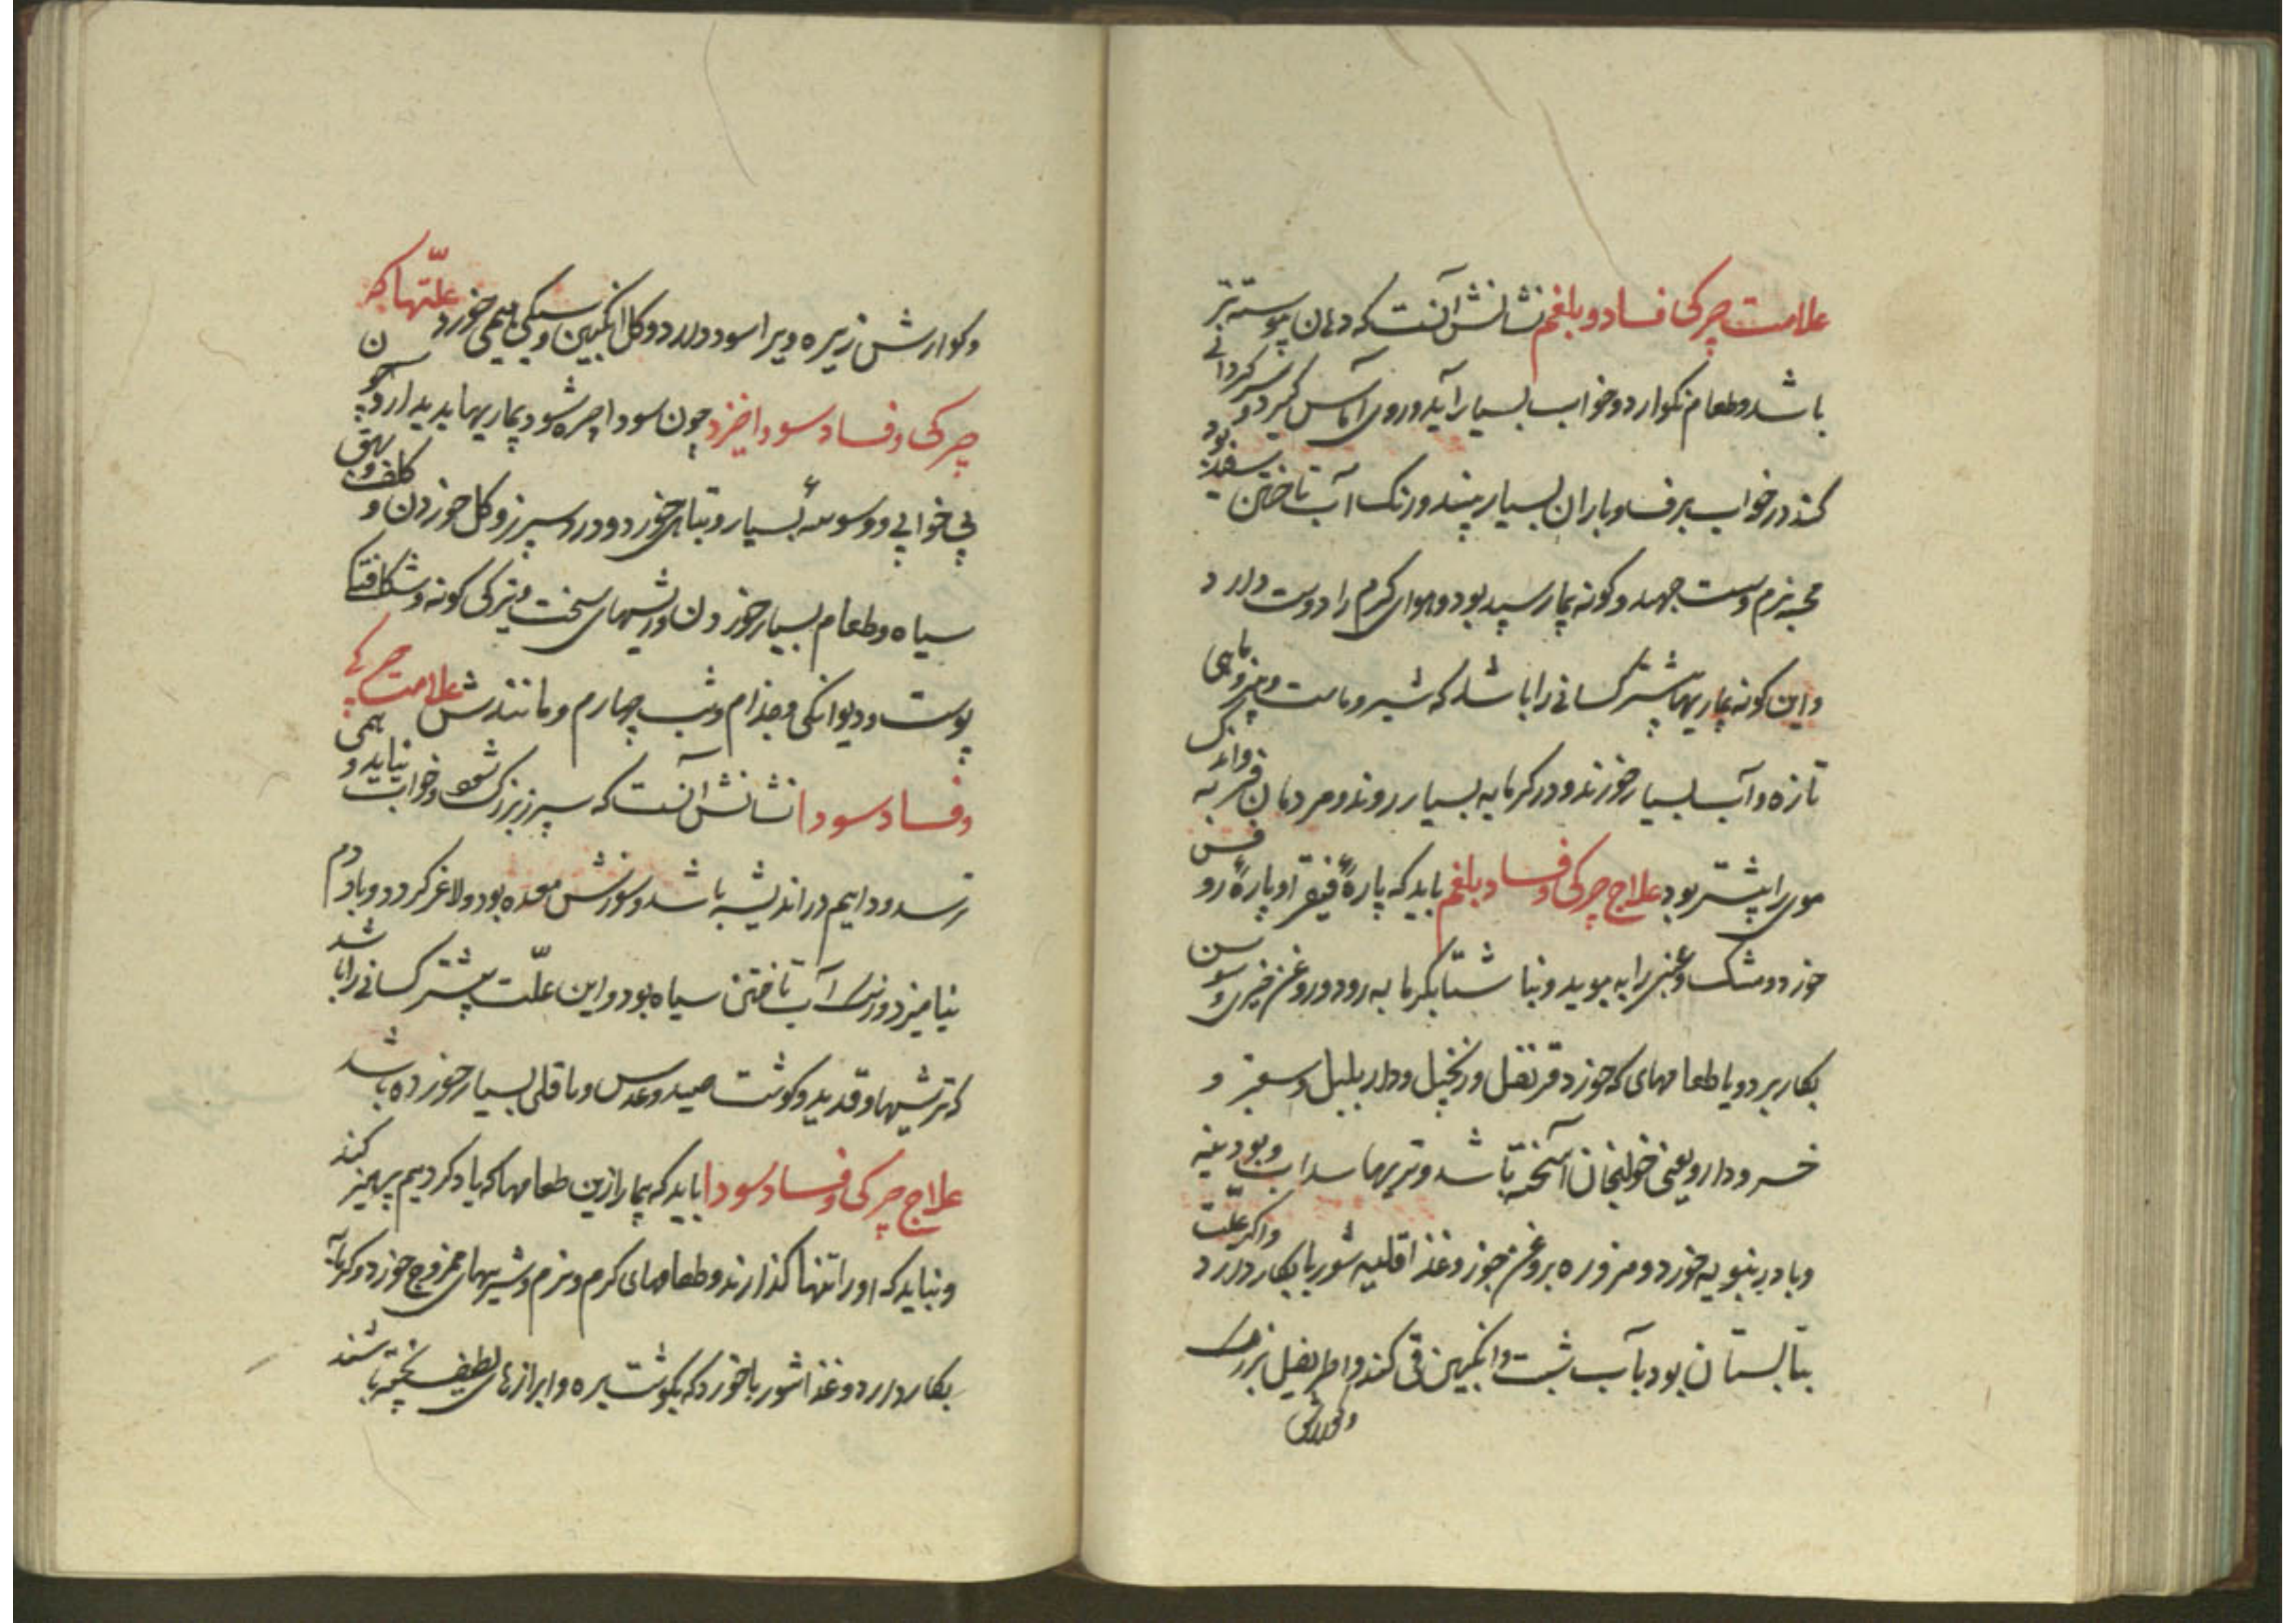 علامت چرکی فساد و بلغم نشانش آنست که دهان پیوسته تر
باشد و طعام نکوارد و خواب بسیار آید و روی آماس گیرد و سر کردانی
کند در خواب برف و باران بسیار بیند و رنک آب تاختن سفید بود
مجسه نرم و سست جهد و کونه بیمار سپید بود و هوای کرم را دوست دارد
و این کونه بیماریها بیشتر کسانی را باشد که شیر و ماست و پنیر و ماهی
تازه و آب بسیار خورند و در کرمابه بسیار روند و مردمان فربه و اندک
موی را بیشتر بود علاج چرکی و فساد بلغم باید که پارهٔ فیقرا و پارهٔ روفس
خورد و مشک و عنبر را به بوید و ناشتا بکرمابه رود و روغن خیری و سوسن
بکار برد و با طعامهای که خورد قرنفل و زنجبیل و دارپلپل و سعتر و
خسرو دارو یعنی خولنجان آمیخته باشد و تریها سداب و بودینه
و بادرنبویه خورد و مزوره بروغن جوز و غذا قلیه شوربا بکار دارد و اکر علّت
بتابستان بود بآب شبت و انکبین قی کند و اطریفل بزرک
و کوارش
و کوارش زیره ویرا سود دارد و کل انکبین و سیکی همی خورد علّتها که از
چرکی و فساد سودا خیزد چون سودا چره شود بیماریها پدید آرد چون
بی خوابی و وسوسهٔ بسیار و تباهی خورد و درد سپرز و کل خوردن و کلف و بهق
سیاه و طعام بسیار خوردن و ریشهای سخت و تیرکی کونه و شکافتکی
پوست و دیوانکی و جذام و تب چهارم و مانندش علامت چرکی
و فساد سودا نشانش آنست که سپرز بزرک شود و خواب نیاید و همی
ترسد و دایم در اندیشه باشد و سوزش معده بود و لاغر کردد و با مردم
نیامیزد و رنک آب تاختن سیاه بود و این علّت بیشتر کسانی را باشد
که ترشیها و قدید و کوشت صید و عدس و باقلی بسیار خورده باشد
علاج چرکی و فساد سودا باید که بیمار ازین طعامها که یاد کردیم پرهیز کند
و نباید که او را تنها کذارند و طعامهای کرم و نرم و شیرینهای ممزوج خورد و کرمابه
بکار دارد و غذا شوربا خورد که بکوشت بره و ابزارهای لطیف پخته باشند